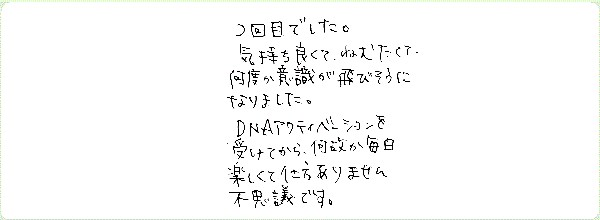 2回目でした。
気持ち良くて、ねむたくて、
何度か意識が飛びそうに
なりました。
DNAアクティベーションを
受けてから、何故か毎日
楽しくて仕方ありません
不思議です。